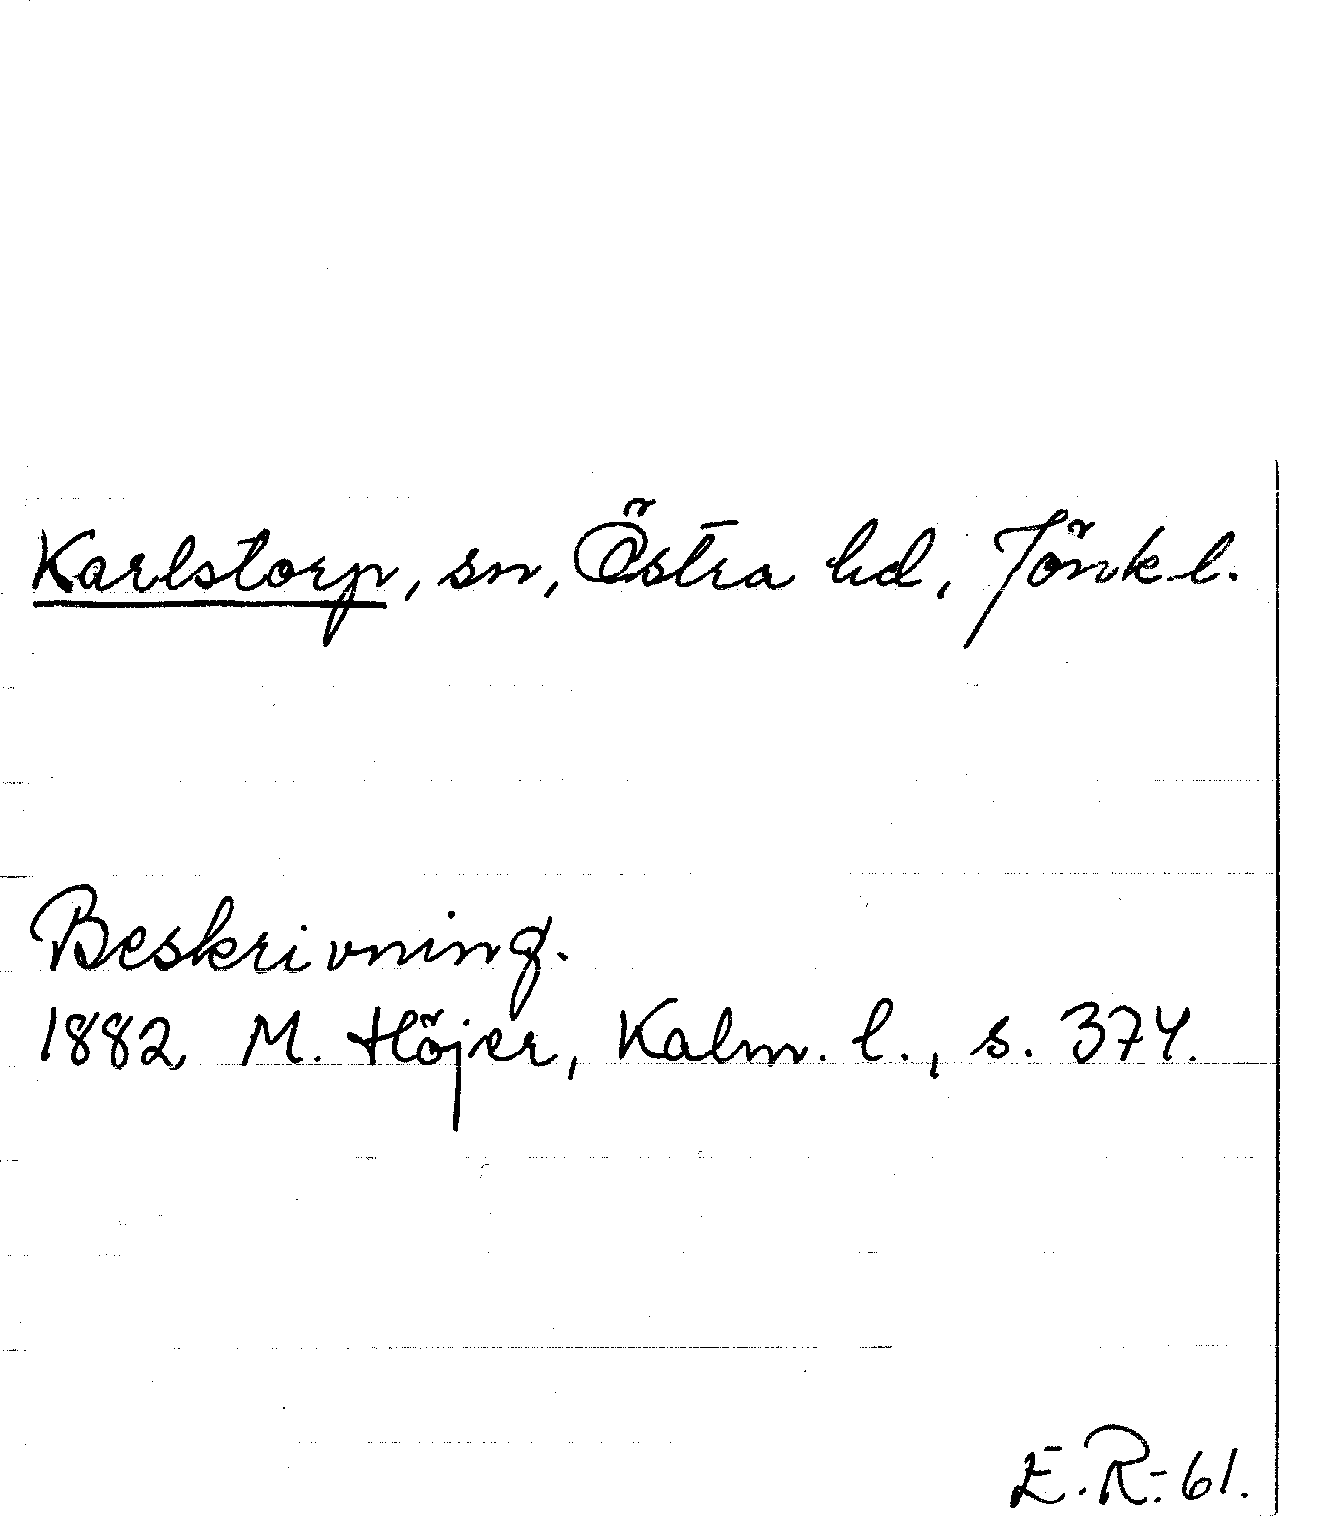 Karlstorp, sn, Östra hd, Jönk.l.
Beskrivning.
1882 M. Höjer, Kalm. l., s. 374.
E.R.-61.